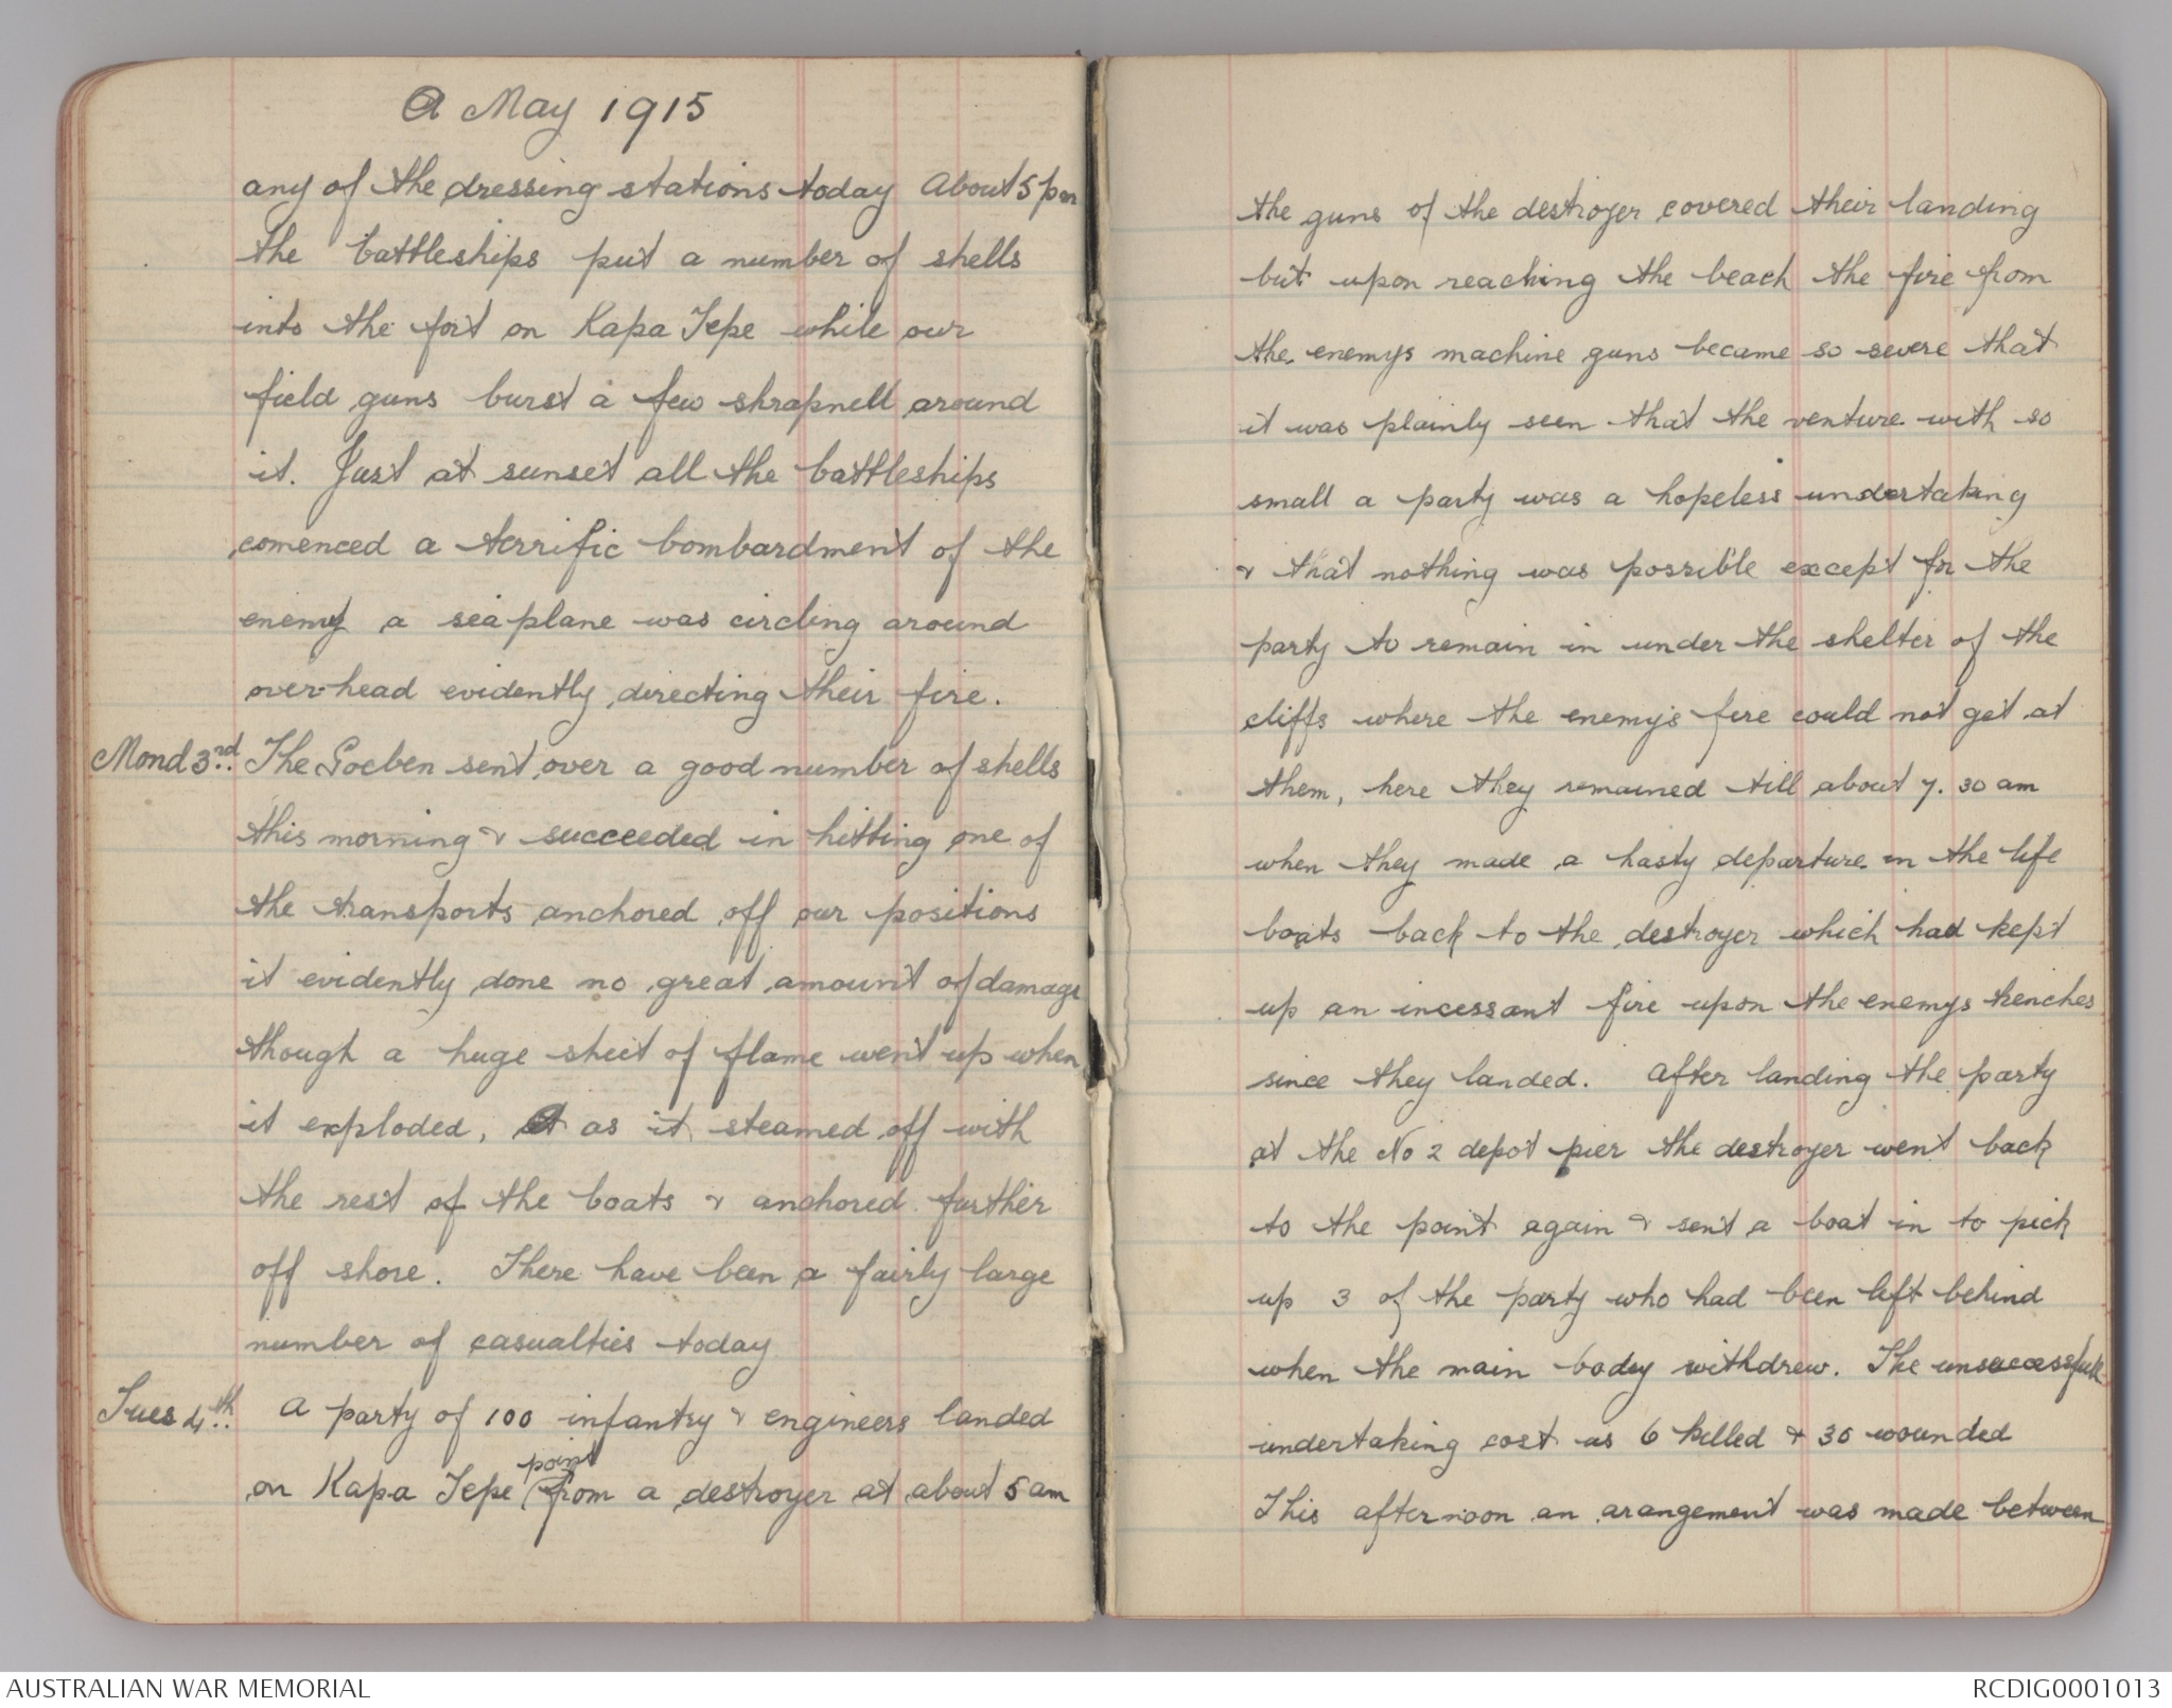 A May 1915
any of the dressing stations today About 5 pm
the battleships put a number of shells
into the fort on Kapa Tepe while our
field guns burst a few shrapnell around
it. Just at sunset all the battleships
comenced a terrific bombardment of the
enemy a seaplane was circling around
overhead evidently directing their fire.
Mond 3rd. The Goeben sent over a good number of shells
this morning & succeeded in hitting one of
the transports anchored off our positions
it evidently done no great amount of damage
though a huge sheet of flame went up when
it exploded, as it steamed off with
the rest of the boats & anchored further
off shore. There have been a fairly large
number of casualties today
Tues 4th. A party of 100 infantry & engineers landed
point
on Kapa Tepe from a destroyer at about 5 am
the guns of the destroyer covered their landing
but upon reaching the beach the fire from
the enemys machine guns became so severe that
it was plainly seen that the venture with so
small a party was a hopeless undertaking
& that nothing was possible except for the
party to remain in under the shelter of the
cliffs where the enemy's fire could not get at
them, here they remained till about 7.30 am
when they made a hasty departure in the life
boats back to the destroyer which had kept
up an incessant fire upon the enemys trenches
since they landed. After landing the party
at the No 2 depot pier the destroyer went back
to the point again & sent a boat in to pick
up 3 of the party who had been left behind
when the main body withdrew. The unsuccessfull
undertaking cost us 6 killed & 30 wounded
This afternoon an arangement was made between
AUSTRALIAN WAR MEMORIAL
RCDIG0001013